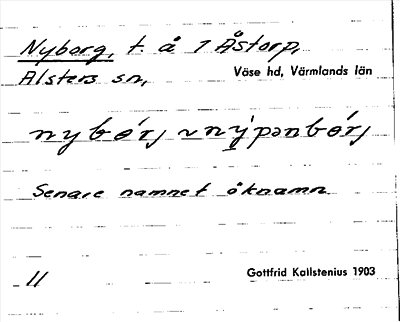 Nyborg, t. å 1 Åstorp,
Alsters sn, Väse hd, Värmlands län
nybór̡ ~ nýpanbór̡
Senare namnet öknamn
11 Gottfrid Kallstenius 1903